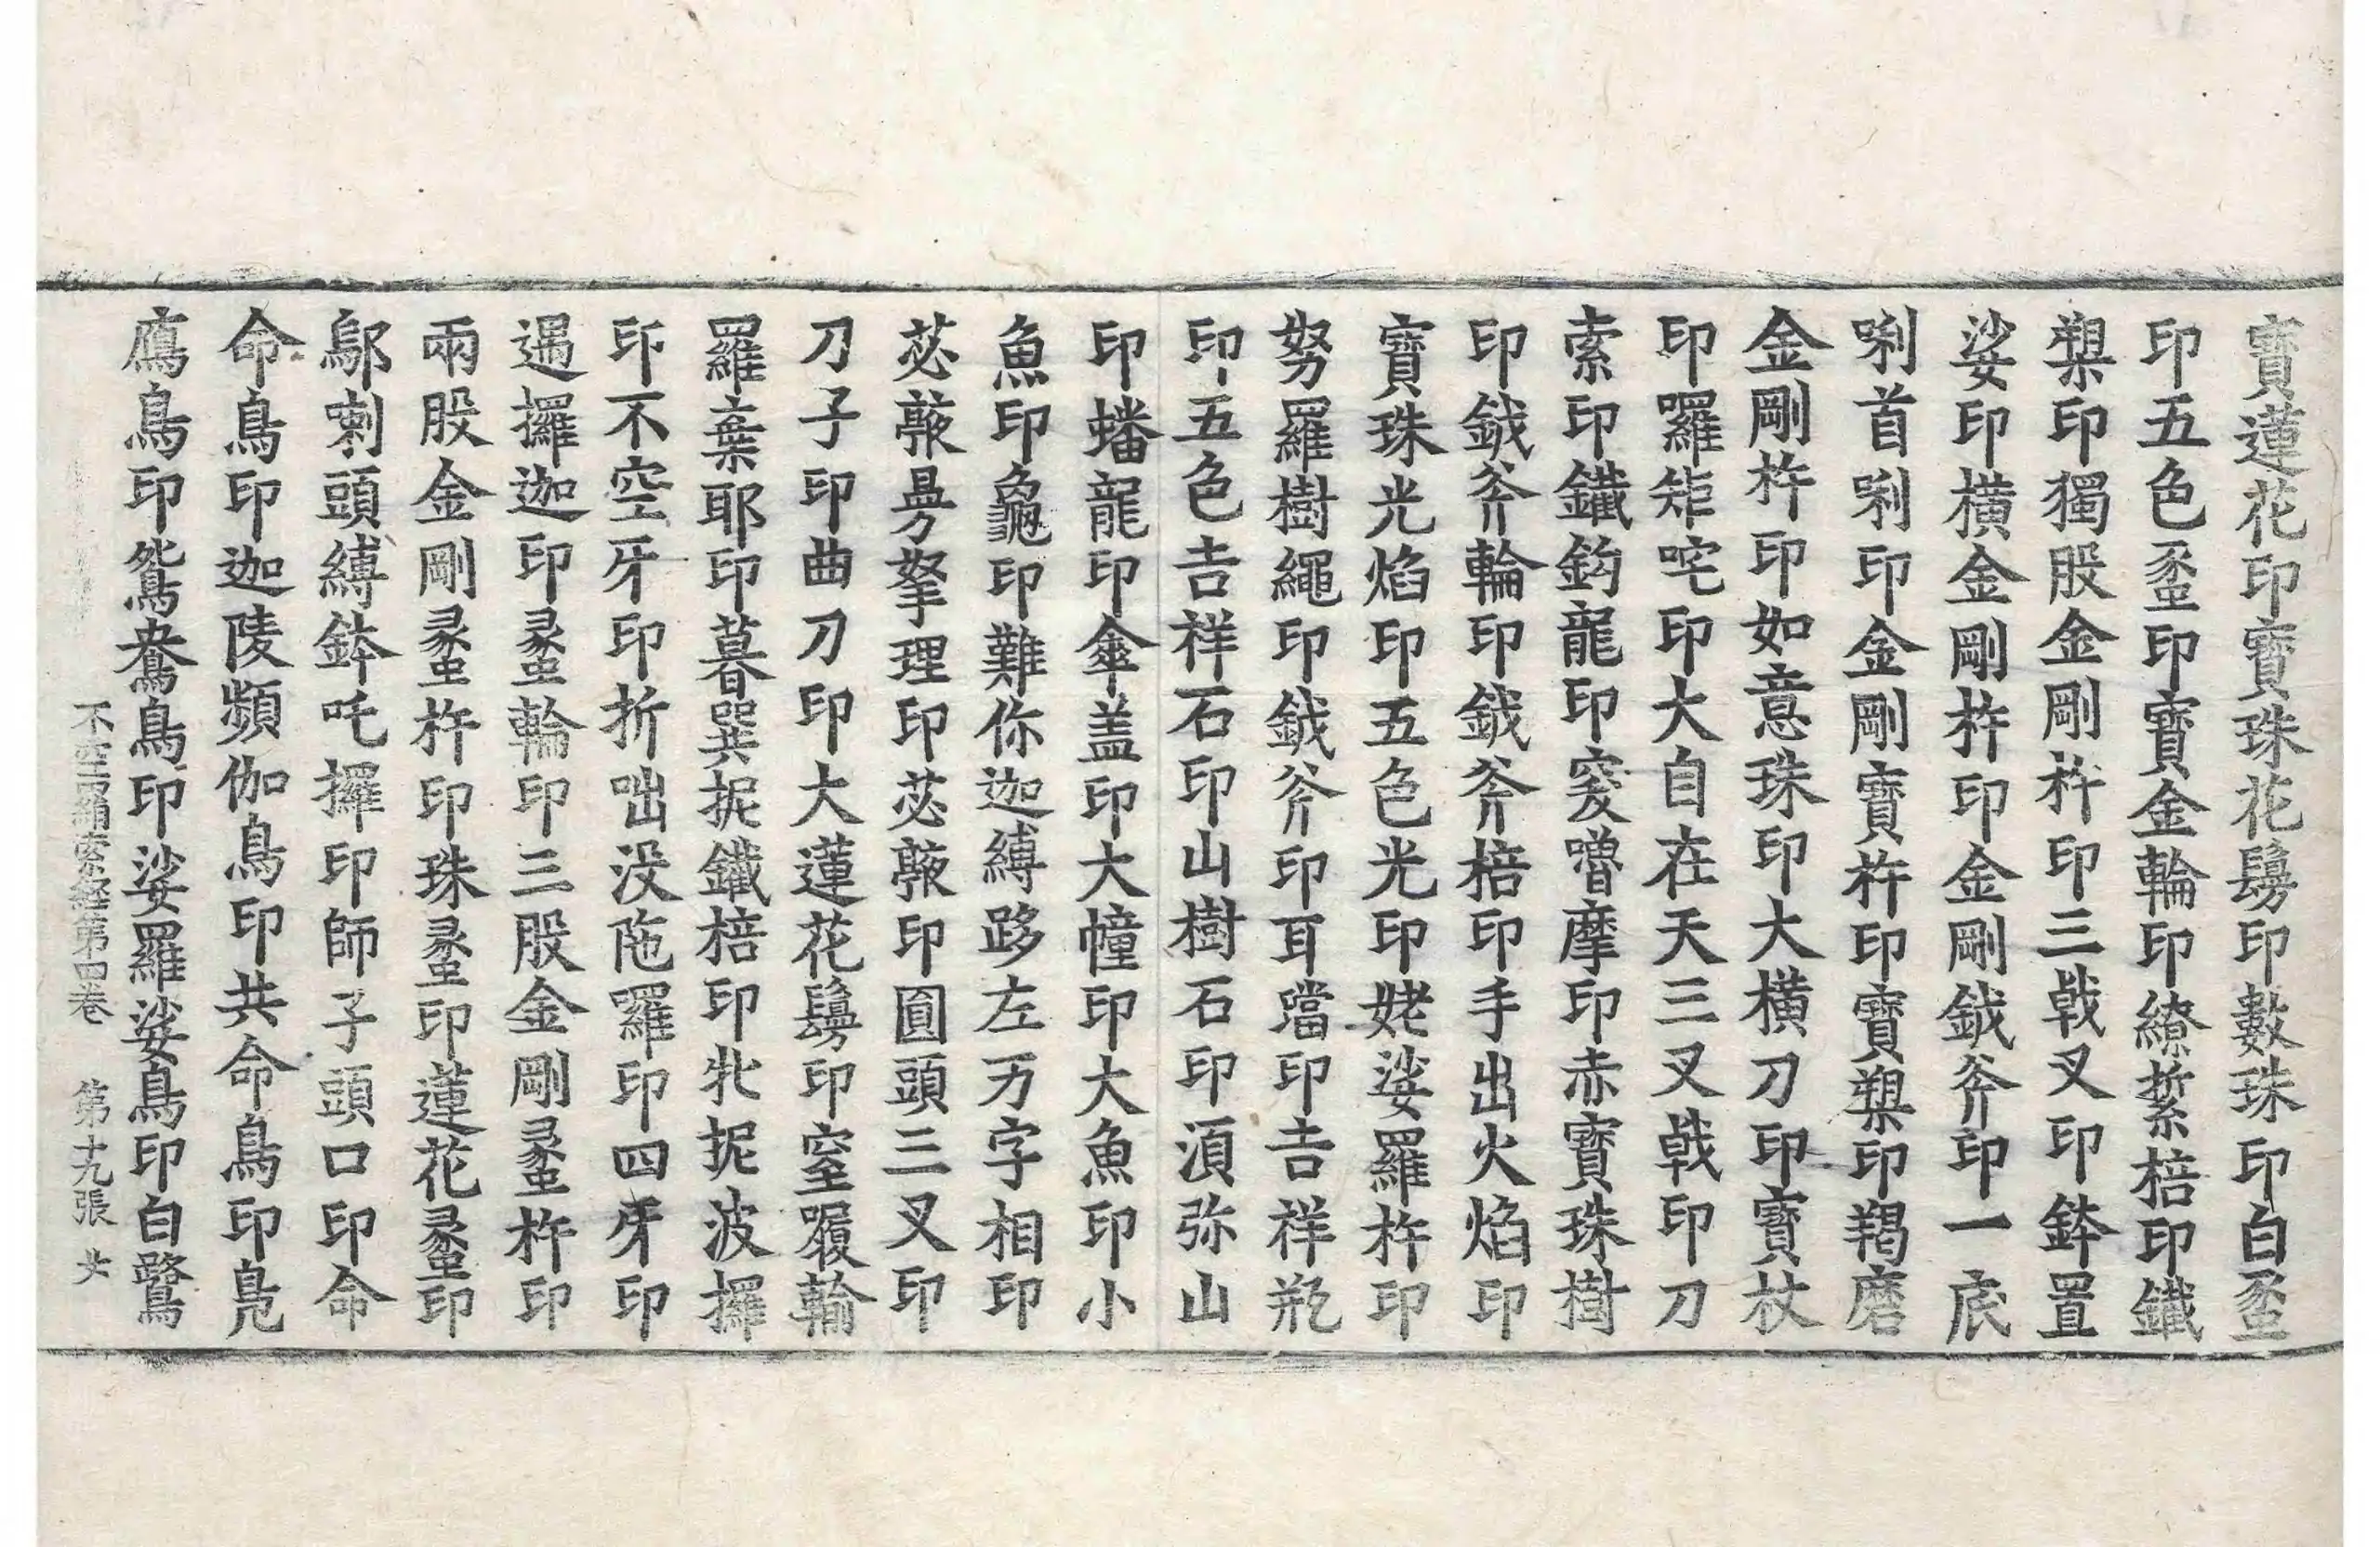 寶蓮花印寶珠花鬘印數珠印白蠡
印五色蠡印寶金輪印繚䋈棓印鐵
槊印獨股金剛杵印三戟叉印鉢置
娑印橫金剛杵印金剛鉞斧印一底
唎首唎印金剛寶杵印寶槊印羯磨
金剛杵印如意珠印大橫刀印寶杖
印囉矩咤印大自在天三叉戟印刀
索印鐵鈎龍印窭嚕摩印赤寶珠樹
印鉞斧輪印鉞斧棓印手出火焰印
寶珠光焰印五色光印姥娑羅杵印
努羅樹繩印鉞斧印耳璫印吉祥瓶
印五色吉祥石印山樹石印湏弥山
印蟠龍印傘盖印大幢印大魚印小
魚印龜印難你迦縛跢左万字相印
苾㗚拏理印苾印圓頭三叉印
刀子印曲刀印大蓮花鬘印室履輸
羅棄耶印暮巽抳鐵棓印牝抳波攞
印不空牙印折咄沒陁囉印四牙印
遏攞迦印蠡輪印三股金剛蠡杵印
兩股金剛蠡杵印珠蠡印蓮花蠡印
鄔喇頭縛鉢吒攞印師子頭口印命
命鳥印迦陵頻伽鳥印共命鳥印鳧
鴈鳥印鴛鴦鳥印娑羅娑鳥印白鷺
不空羂索經第四卷 第十九張